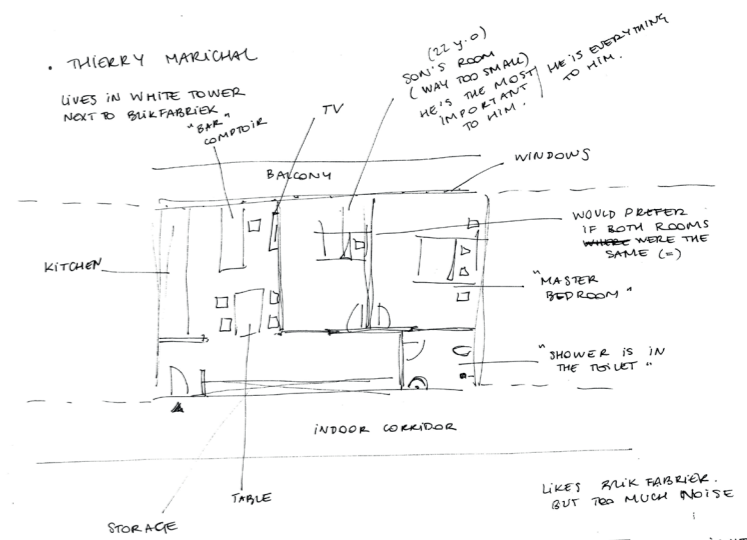 • THIERRY MARICHAL
LIVES IN WHITE TOWER
NEXT TO BLIKFABRIEK
"BAR"
COMPTOIR
TV
(22 y.o)
SON'S ROOM
(WAY TOO SMALL)
HE'S THE MOST
IMPORTANT
TO HIM.
HE IS EVERYTHING
TO HIM.
WINDOWS
BALCONY
WOULD PREFER
IF BOTH ROOMS
WHERE WERE THE
SAME (=)
KITCHEN
"MASTER
BEDROOM"
"SHOWER IS IN
THE TOILET"
INDOOR CORRIDOR
TABLE
STORAGE
LIKES BLIK FABRIEK.
BUT TOO MUCH NOISE